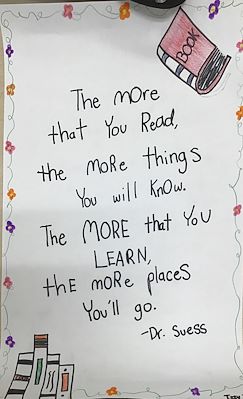 BOOK
The more
that You Read,
the MoRe things
You will KNOW.
The MORE that YoU
LEARN,
thE moRe places
You'll go.
-Dr. Suess